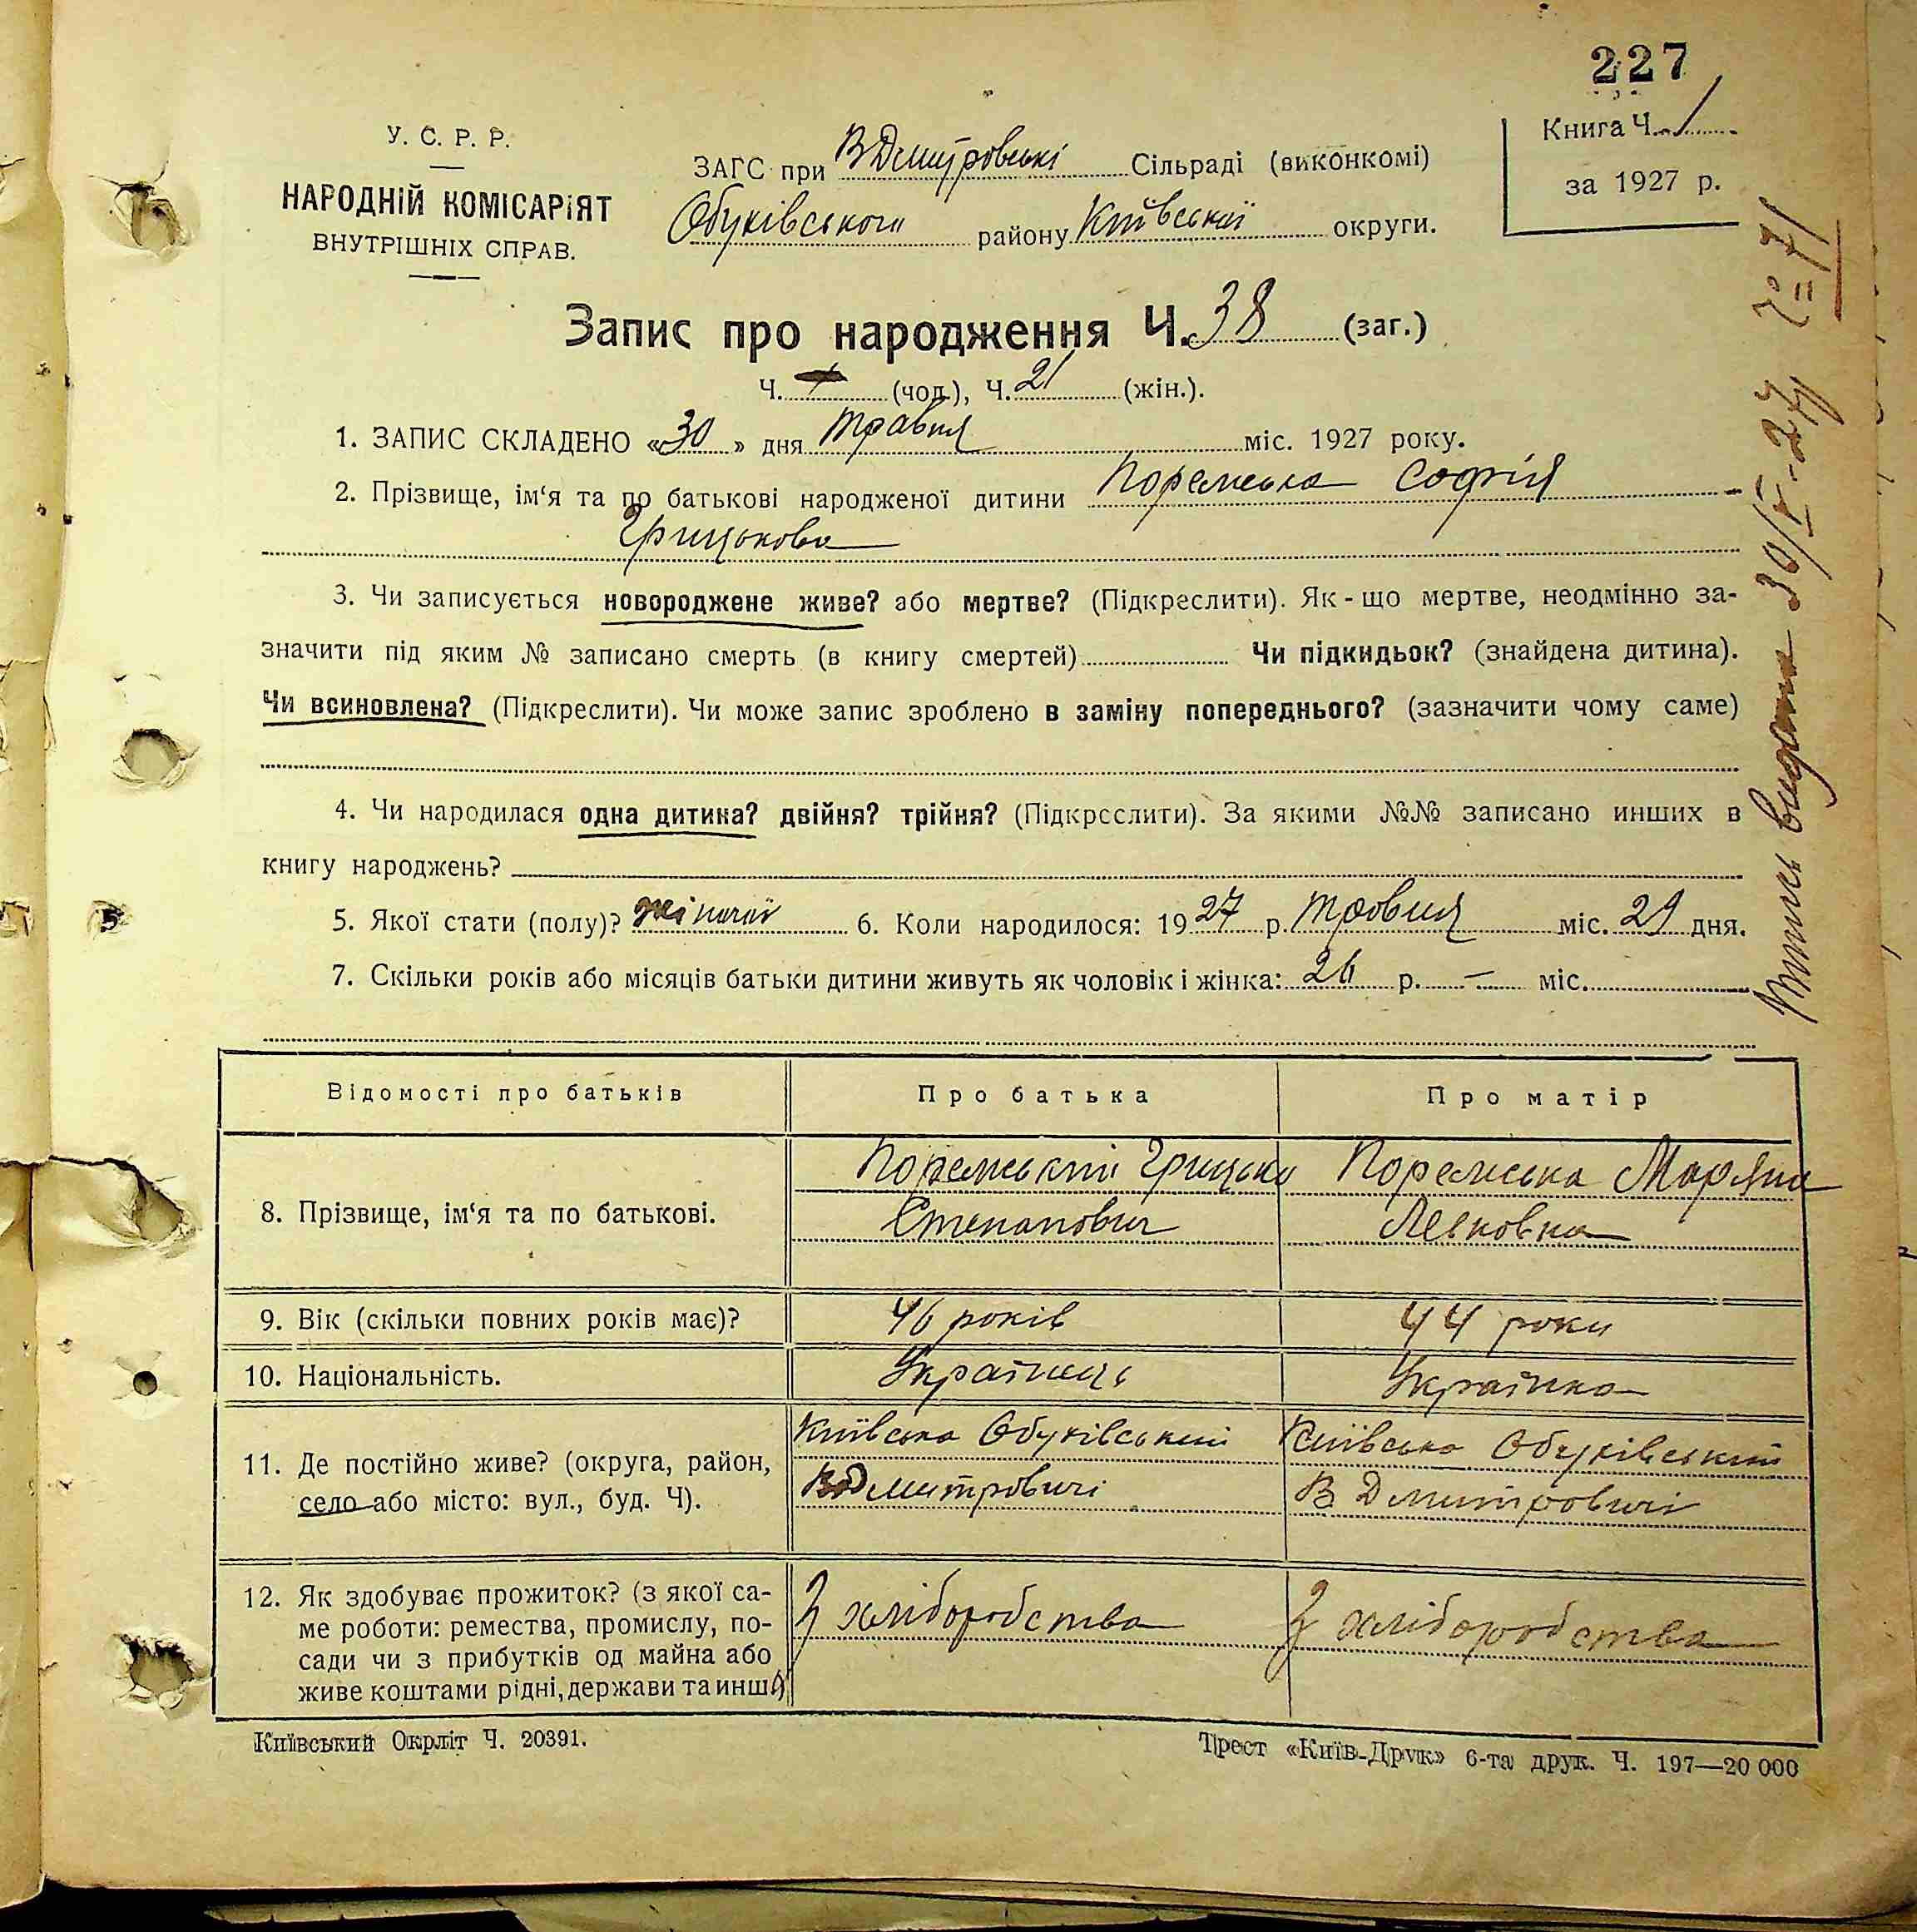 227
У. С. Р. Р.
НАРОДНІЙ КОМІСАРІЯТ
ВНУТРІШНІХ СПРАВ.
ЗАГС при ВДмитровські Сільраді (виконкомі)
Обухівського району Київської округи.
Книга Ч. 1
за 1927 р.
Запис про народження Ч. 38 (заг.)
Ч. (чол.), Ч. 21 (жін.).
1. ЗАПИС СКЛАДЕНО «30» дня травня міс. 1927 року.
2. Прізвище, ім‘я та по батькові народженої дитини Поремська Софія
Грицькова
3. Чи записується новороджене живе? або мертве? (Підкреслити). Як-що мертве, неодмінно за-
значити під яким № записано смерть (в книгу смертей) Чи підкидьок? (знайдена дитина).
Чи всиновлена? (Підкреслити). Чи може запис зроблено в заміну попереднього? (зазначити чому саме)
4. Чи народилася одна дитина? двійня? трійня? (Підкреслити). За якими №№ записано инших в
книгу народжень?
5. Якої стати (полу)? жіночої 6. Коли народилося: 1927 р. травня міс. 29 дня.
7. Скільки років або місяців батьки дитини живуть як чоловік і жінка: 26 р. – міс.
Відомості про батьків
Про батька
Про матір
8. Прізвище, ім‘я та по батькові.
Поремський Грицько
Степанович
Поремська Марʼяна
Левковна
9. Вік (скільки повних років має)?
46 років
44 роки
10. Національність.
Українець
Українка
11. Де постійно живе? (округа, район,
село або місто: вул., буд. Ч).
Київська Обухівський
ВДмитровичі
Київська Обухівський
В Дмитровичі
12. Як здобуває прожиток? (з якої са-
ме роботи: ремества, промислу, по-
сади чи з прибутків од майна або
живе коштами рідні, держави та инш.)
З хліборобства
З хліборобства
Київський Окрліт Ч. 20391.
Трест «Київ-Друк» 6-та друк. Ч. 197—20 000
видано 30/V-27